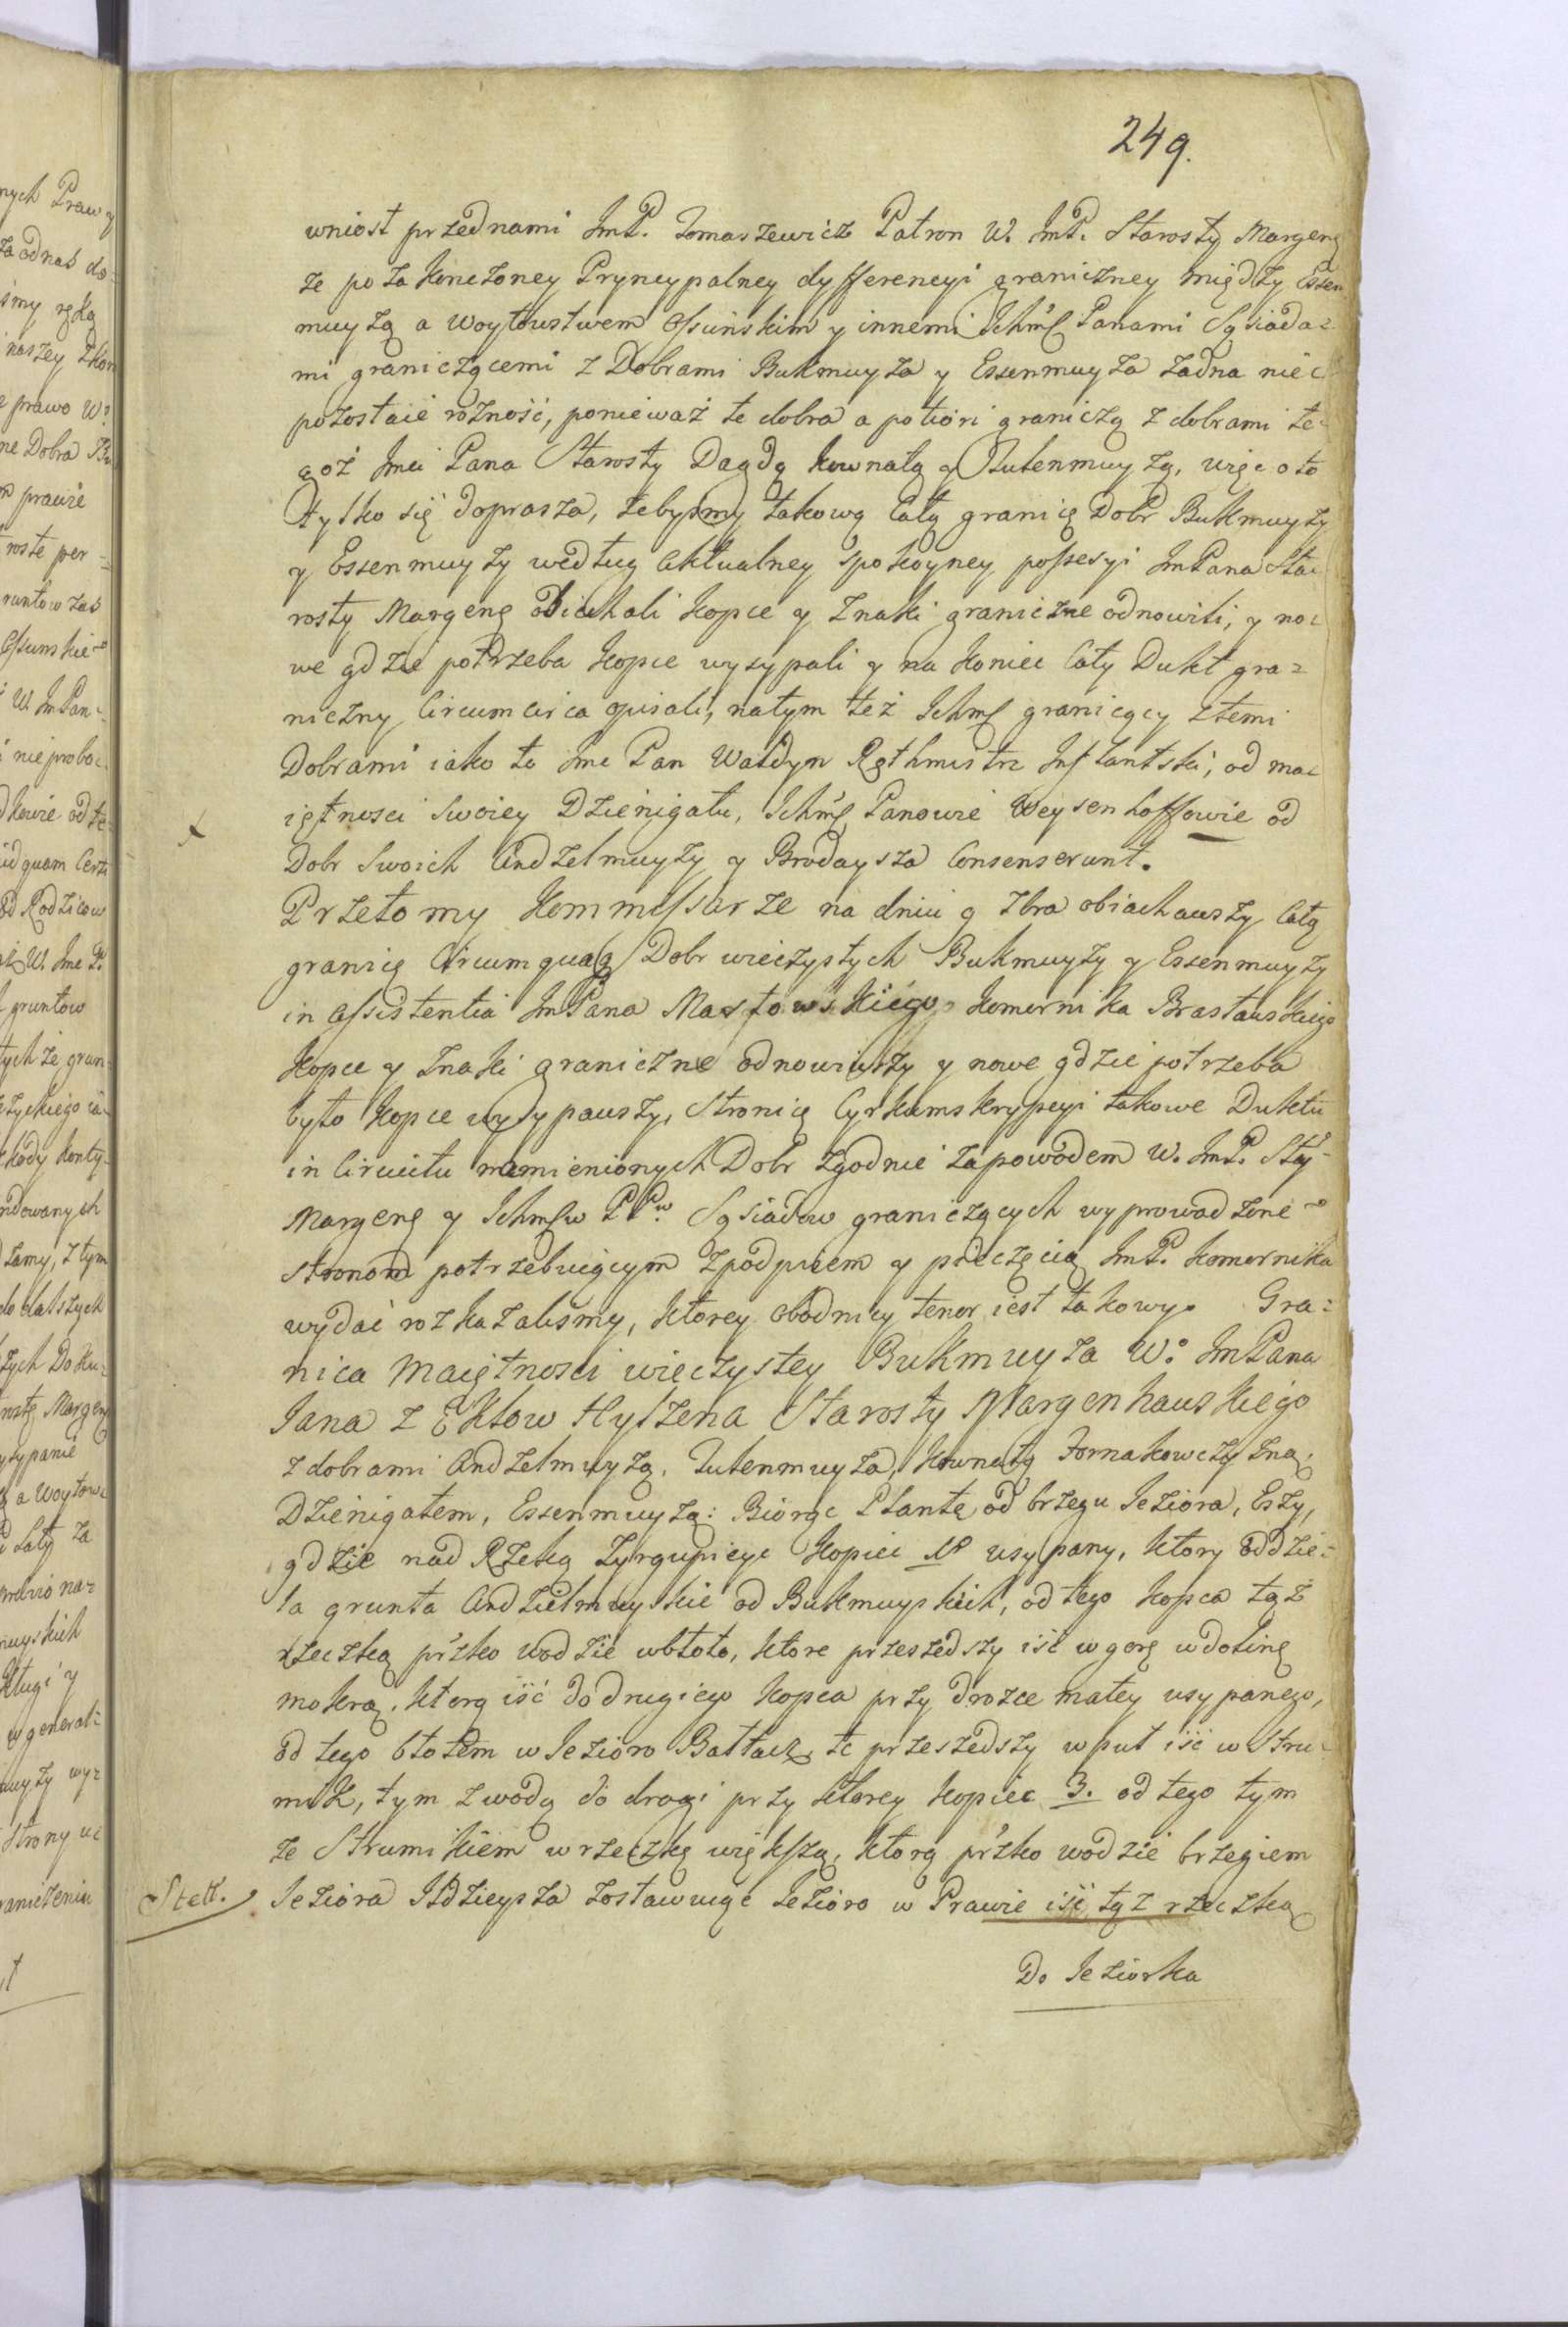 249.
wniost przednami JmP. Tomaszewicz Patron W. JmP. Starosty Margeng
że poza kończoney Pryncypalney dyfferencyi graniczney między Essen
muyzą a Woytowstwem Ossuńskim y innemi Ichmć Panami Sąsiada=
mi graniczącemi z Dobrami Bukmuyza y Essenmuyza żadna nie
pozostaie rożność, ponieważ te dobra a potiori graniczą z dobrami te=
goż Jmci Pana Starosty Dagdą Kownatą y Rutenmuyzą, więc oto
tylko się doprasza, żebysmy takową Całą granicę Dobr Bukmuyzy
y Essenmuyzy według aktualney spokoyney possesyi JmPana Sta=
rosty Margeng obiachali kopce y Znaki graniczne odnowili, y no=
we gdzie potrzeba kopce wysypali y na koniec Cały Dukt gra=
niczny Circumcirca opisali, natym też Ichmć granicący ztemi
Dobrami iako to Jmć Pan Waldyn Rothmistrz Inflantski, od ma=
iętnosci Swoiey Dzienigału, Ichmć Panowie Weysenhoffowie od
Dobr Swoich Andzelmuyzy y Brodaysza Consenserunt.
Przeto my Kommissarze na dniu 9 Zbra obiachauszy Całą
granicę Circumquaq Dobr wieczystych Bukmuyzy y Essenmuyzy
in assistentia JmPana Masłowskiego Komornika Brasławskiego
kopce y Znaki graniczne odnowiwszy y nowe gdzie potrzeba
było kopce wysypauszy, Stronię Cyrkumskrypcyi takowe Duktu
in Circuitu namienionych Dobr zgodnie zapowodem W. JmP. Sty
Margeng y Ichmćw PPw Sąsiadow graniczących wyprowadzone
stronom potrzebuiącym zpodpisem y pieczęcią JmP. Komornika
wydać rozkazalismy, ktorey obodnicy tenor iest takowy. Gra=
nica Maiętnosci wieczystey Bukmuyza W. JmPana
Jana z Ekłow Hylzena Starosty Margenhauskiego
z dobrami Andzelmuyzą, Rutenmuyza, Kownatą Fornakowczyzną,
Dzienigałem, Essenmuyzą: Biorąc Plantę od brzegu Jeziora, Eszy,
gdzie nad Rzeką Zyrgupicyc kopiec usypany, ktory oddzie=
la grunta Andzielmuyskie od Bukmuyskich, od tego kopca tąż
rzeczką przko wodzie wbłoto, ktore przeszedszy iść w gorę w dolinę
mokrą, ktorą iść do drugiego kopca przy drozce małey usypanego,
od tego błotem w Jezioro Bałtacz, te przeszedszy w puł iść w stru=
mik, tym z wodą do drogi przy ktorey kopiec 3. od tego tym
ze Strumikiem w rzeczkę większą, ktorą przko wodzie brzegiem
Jeziora Jłdzieysza zostawuiąc Jezioro w Prawie iść, tąż rzeczką
Do Jeziorka